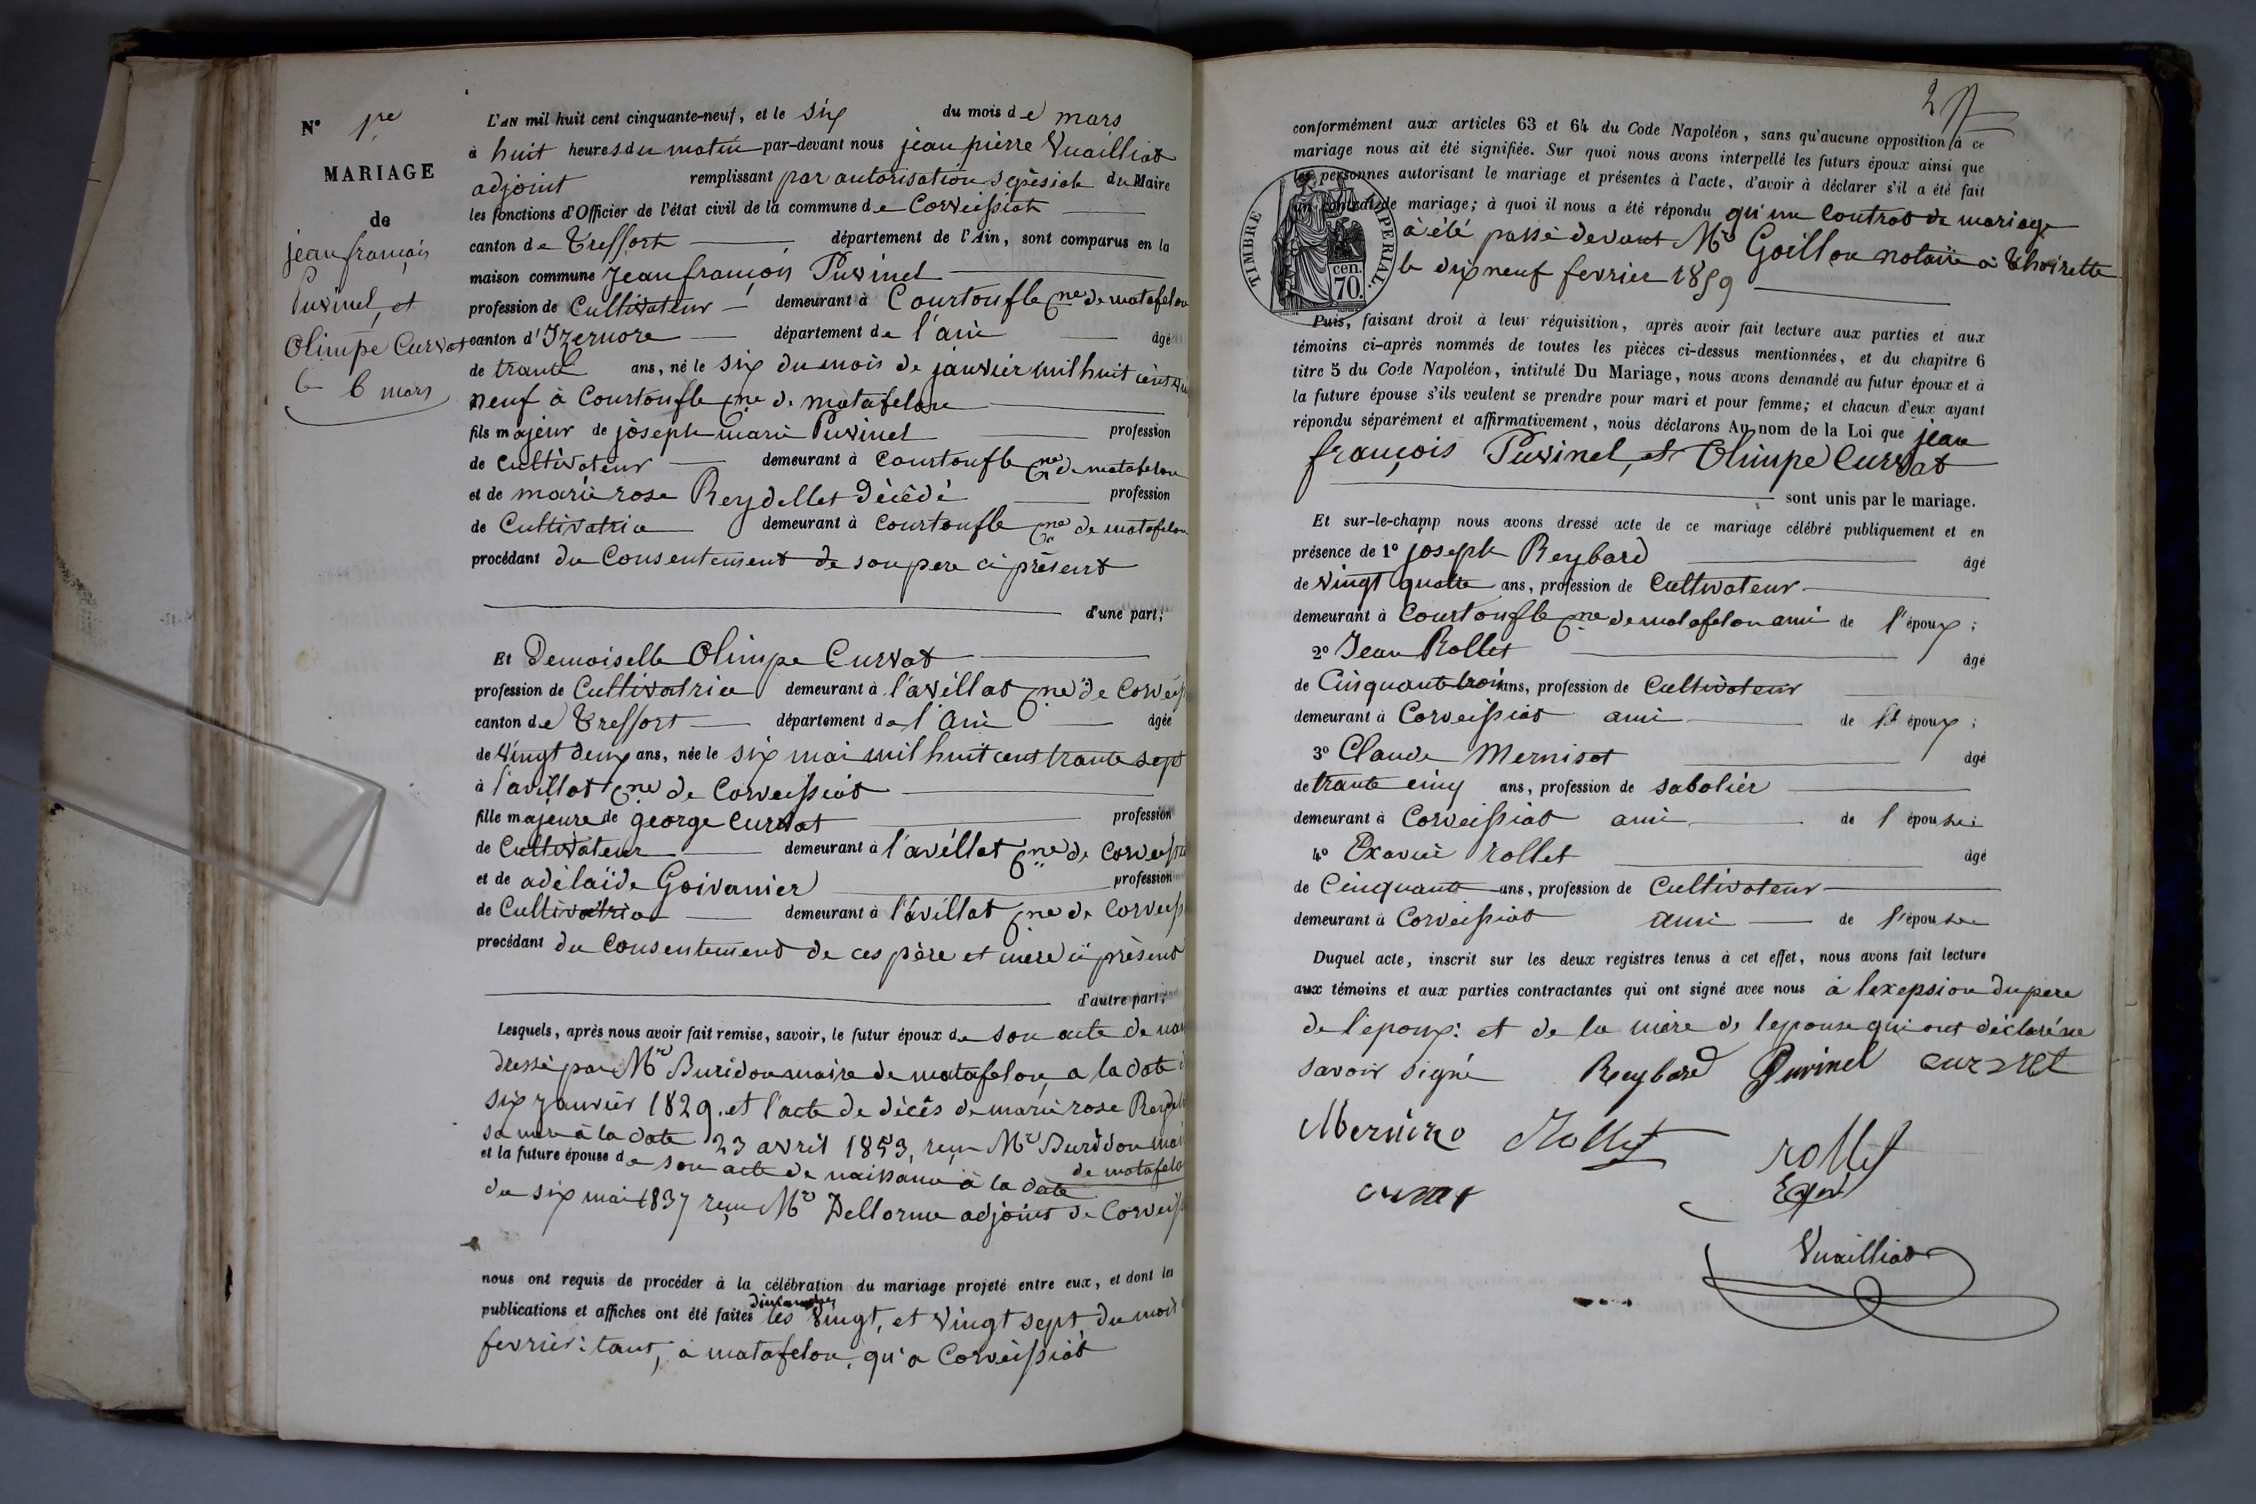 N° 1re
MARIAGE
de
jean françois
Puvinel, et
Olimpe Curvat
le 6 mars
L'AN mil huit cent cinquante-neuf, et le six du mois de mars
à huit heures du matin par-devant nous jean pierre Vuailliat
adjoint remplissant par autorisation sepésiale du Maire
les fonctions d'Officier de l'état civil de la commune de Corveissiat
canton de Treffort département de l'Ain, sont comparus en la
maison commune Jean françois Puvinel
profession de Cultivateur demeurant à Courtoufle Cne de matafelon
canton d'Izernore département de l'ain âgé
de trante ans, né le six du mois de janvier mil huit cent vin
neuf à Courtoufle Cne de matafelon
fils majeur de joseph marie Puvinel profession
de Cultivateur demeurant à Courtoufle Cne de matafelon
et de marie rose Reydellet décédé profession
de Cultivatrice demeurant à Courtoufle Cne de matafelon
procédant du Consentement de son pere ci présent
d'une part;
Et Demoiselle Olimpe Curvat
profession de Cultivatrice demeurant à l'avéllat Cne de Corveiss
canton de Treffort département de l'Ain âgée
de vingt deux ans, née le six mai mil huit cent trante sept
à l'avillat Cne de Corveissiat
fille majeure de george Curvat profession
de Cultivateur demeurant à l'avéllat Cne de Corveissia
et de adélaïde Goivanier profession
de Cultivatrice demeurant à l'avillat Cne de Corveiss
procédant du Consentement de ces père et mère ci présent
d'autre part;
Lesquels, après nous avoir fait remise, savoir, le futur époux de son acte de nais
dressé par Mr Buridon maire de matafelon, a la date
six janvier 1829. et l'acte de décès de marie rose Reydel
sa mere à la date 23 avril 1853, reçu Mr Buridon mai
de matafelo
et la future épouse de son acte de naissance à la date
du six mai 1837 reçu Mr Dellorme adjoint de Corveiss
nous ont requis de procéder à la célébration du mariage projeté entre eux, et dont les
dimanches
publications et affiches ont été faites les vingt, et vingt sept, du mois
fevrier: tant, à matafelon, qu'a Corveissiat
2
conformément aux articles 63 et 64 du Code Napoléon, sans qu'aucune opposition à ce
mariage nous ait été signifiée. Sur quoi nous avons interpellé les futurs époux ainsi que
les personnes autorisant le mariage et présentes à l'acte, d'avoir à déclarer s'il a été fait
un contrat de mariage; à quoi il nous a été répondu qu'un Contrat de mariage
à été passé devant Mr Goillon notaire à Thoirette
le dix neuf fevrier 1859
TIMBRE IMPERIAL.
cen.
70.
Puis, faisant droit à leur réquisition, après avoir fait lecture aux parties et aux
témoins ci-après nommés de toutes les pièces ci-dessus mentionnées, et du chapitre 6
titre 5 du Code Napoléon, intitulé Du Mariage, nous avons demandé au futur époux et à
la future épouse s'ils veulent se prendre pour mari et pour femme; et chacun d'eux ayant
répondu séparément et affirmativement, nous déclarons Au nom de la Loi que jean
françois Puvinel, et Olimpe Curvat
sont unis par le mariage.
Et sur-le-champ nous avons dressé acte de ce mariage célébré publiquement et en
présence de 1° joseph Reybard âgé
de vingt quatre ans, profession de Cultivateur
demeurant à Courtoufle Cne de matafelon ami de l'époux;
2° Jean Rollet âgé
de Cinquante trois ans, profession de Cultivateur
demeurant à Corveissiat ami de l'époux;
3° Claude Mernisot âgé
de trante cinq ans, profession de sabotier
demeurant à Corveissiat ami de l'épouse
4° Exavier rollet âgé
de Cinquante ans, profession de Cultivateur
demeurant à Corveissiat ami de l'épouse
Duquel acte, inscrit sur les deux registres tenus à cet effet, nous avons fait lecture
aux témoins et aux parties contractantes qui ont signé avec nous à l'exepsion du pere
de l'epoux: et de la mère de l'epouse qui ont déclaré ne
savoir signé Reybard Puvinel curvat
Mernizo Rollet rollet
Vuailliat